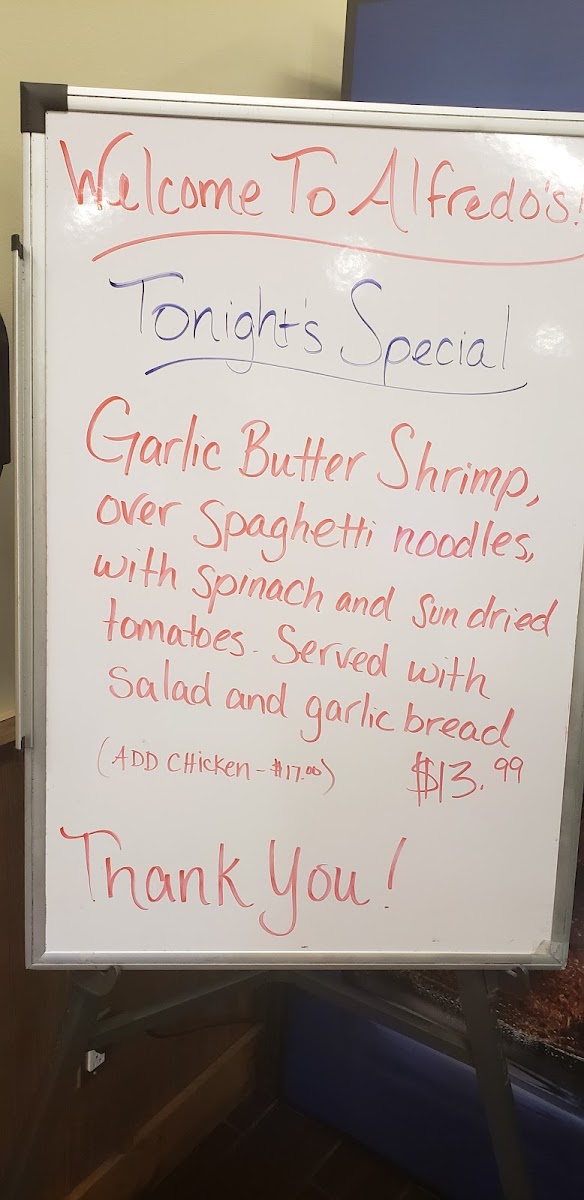 Welcome To Alfredo's!
Tonight's Special
Garlic Butter Shrimp,
over spaghetti noodles,
with spinach and sun dried
tomatoes. Served with
salad and garlic bread
(ADD CHicken - $17.00) $13.99
Thank You!